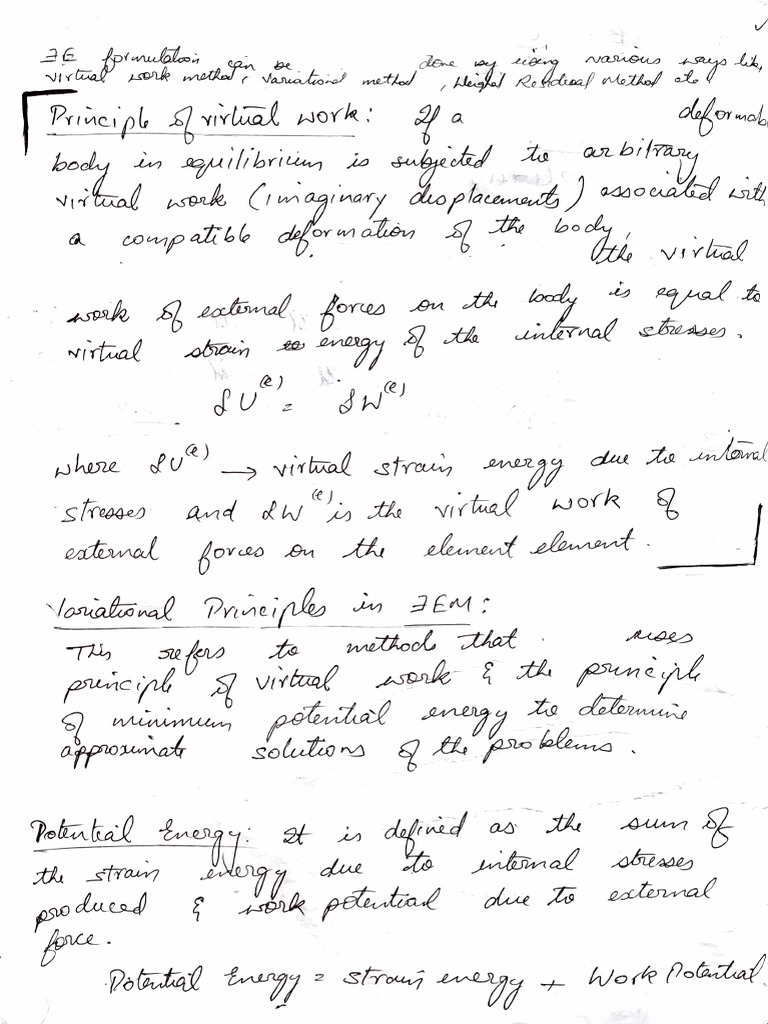 FE formulation can be done by using various ways like,
virtual work method, variational method, Weighted Residual Method etc
Principle of virtual work: If a deformab
body in equilibrium is subjected to arbitrary
virtual work (imaginary displacements) associated with
a compatible deformation of the body, the virtual
work of external forces on the body is equal to
virtual strain energy of the internal stresses.
δU(e) = δW(e)
where δU(e) → virtual strain energy due to internal
stresses and δW(e) is the virtual work of
external forces on the element element.
Variational Principles in FEM:
This refers to methods that uses
principle of virtual work & the principle
of minimum potential energy to determine
approximate solutions of the problems.
Potential Energy: It is defined as the sum of
the strain energy due to internal stresses
produced & work potential due to external
force.
Potential Energy = strain energy + Work Potential.